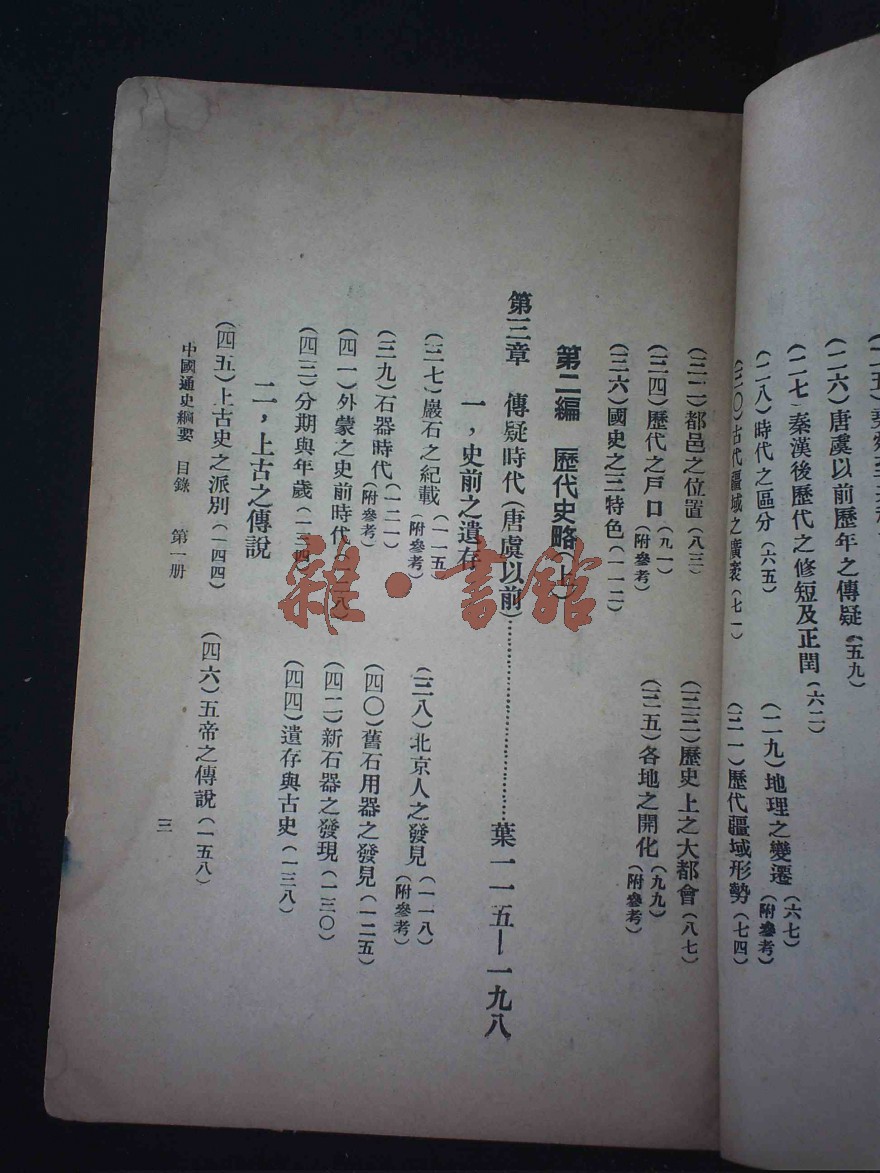 (二六)唐虞以前歷年之傳疑(五九)
(二七)秦漢後歷代之修短及正閏(六二)
(二八)時代之區分(六五) (二九)地理之變遷(六七)(附參考)
(三〇)古代疆域之廣袤(七一) (三一)歷代疆域形勢(七四)
(三二)都邑之位置(八三) (三三)歷史上之大都會(八七)
(三四)歷代之戶口(九一)(附參考) (三五)各地之開化(九九)(附參考)
(三六)國史之三特色(一一二)
第二編 歷代史略(上)
第三章 傳疑時代(唐虞以前)……………………葉一一五—一九八
一，史前之遺存
(三七)巖石之紀載(一一五)(附參考) (三八)北京人之發見(一一八)(附參考)
(三九)石器時代(一二一)(附參考) (四〇)舊石用器之發見(一二五)
(四一)外蒙之史前時代(一二八) (四二)新石器之發現(一三〇)
(四三)分期與年歲(一三四) (四四)遺存與古史(一三八)
二，上古之傳說
(四五)上古史之派別(一四四) (四六)五帝之傳說(一五八)
中國通史綱要 目錄 第一册 三
雜·書館